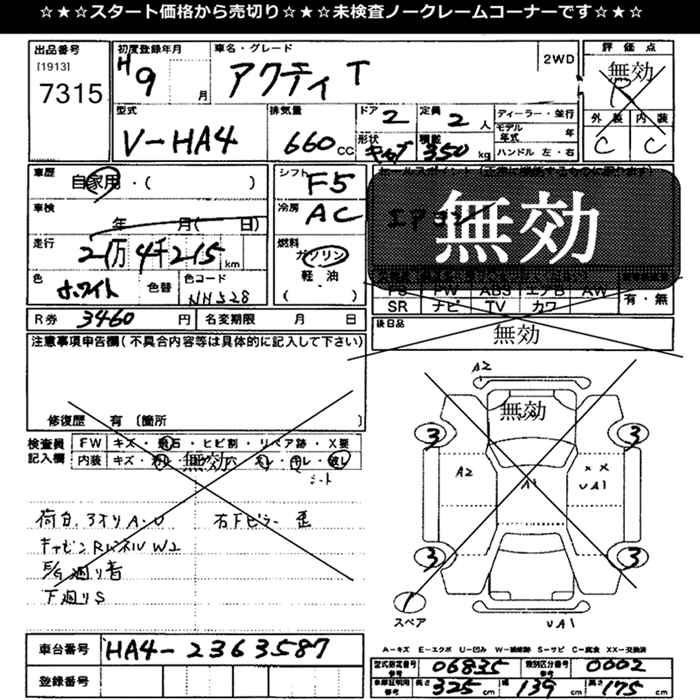 ☆★☆★スタート価格から売切り☆★☆★未検査ノークレームコーナーです☆★☆
出品番号 初度登録年月 車名・グレード 評価点
[1913] H9 月 アクティ T 2WD 無効
7315
型式 排気量 ドア 2 定員 2 人 ディーラー・並行 外装 内装
V-HA4 660 CC 形状 積載 350 kg モデル年式 年 C C
ハンドル 左・右
車歴 自家用・( ) シフト F5
車検 年 月( 日) 冷房 AC エアコン
無効
走行 2万4千215 km 燃料 ガソリン
軽・油
( )
色 ホワイト 色替 色コード NH528
PS PW ABS エアB AW 有・無
SR ナビ TV カワ
R券 3460 円 名変期限 月 日 後日品
無効
注意事項申告欄(不具合内容等は具体的に記入して下さい)
修復歴 有 〔箇所
検査員 FW キズ・飛石・ヒビ割・リペア跡・X要
記入欄 内装 キズ・
無効
シート
荷台
下廻りS
A2
無効
3 3
A2 A1 XX
UA1
3 3
1
スペア UA1
車台番号 HA4-2363587
登録番号
A-キズ E-エクボ U-凹み W-補修跡 S-サビ C-腐食 XX-交換済
型式指定番号 06835 類別区分番号 0002
参考 参考
長さ 325 cm 幅 139 cm 高さ 175 cm